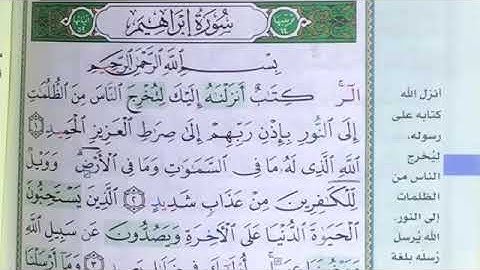 سُورَةُ إِبْرَاهِيمَ
بِسْمِ ٱللَّهِ ٱلرَّحْمَٰنِ ٱلرَّحِيمِ
الٓرۚ كِتَٰبٌ أَنزَلْنَٰهُ إِلَيْكَ لِتُخْرِجَ ٱلنَّاسَ مِنَ ٱلظُّلُمَٰتِ
إِلَى ٱلنُّورِ بِإِذْنِ رَبِّهِمْ إِلَىٰ صِرَٰطِ ٱلْعَزِيزِ ٱلْحَمِيدِ ١
ٱللَّهِ ٱلَّذِى لَهُۥ مَا فِى ٱلسَّمَٰوَٰتِ وَمَا فِى ٱلْأَرْضِۗ وَوَيْلٌ
لِّلْكَٰفِرِينَ مِنْ عَذَابٍ شَدِيدٍ ٢ ٱلَّذِينَ يَسْتَحِبُّونَ
ٱلْحَيَوٰةَ ٱلدُّنْيَا عَلَى ٱلْءَاخِرَةِ وَيَصُدُّونَ عَن سَبِيلِ ٱللَّهِ
وَيَبْغُونَهَا عِوَجًا أُو۟لَٰٓئِكَ فِى ضَلَٰلٍۭ بَعِيدٍ ٣ وَمَآ أَرْسَلْنَا
انزل الله
كتابه على
رسوله،
ليُخرج
الناس من
الظلمات
إلى النور.
الله يُرسل
رُسله بلغة